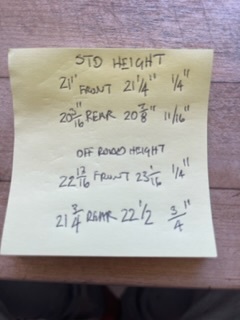 STD HEIGHT
21" FRONT 21 1/4" 1/4"
20 3/16" REAR 20 7/8" 11/16"
OFF ROAD HEIGHT
FRONT 23 1/16 1/4"
21 3/4 REAR 22 1/2 3/4"